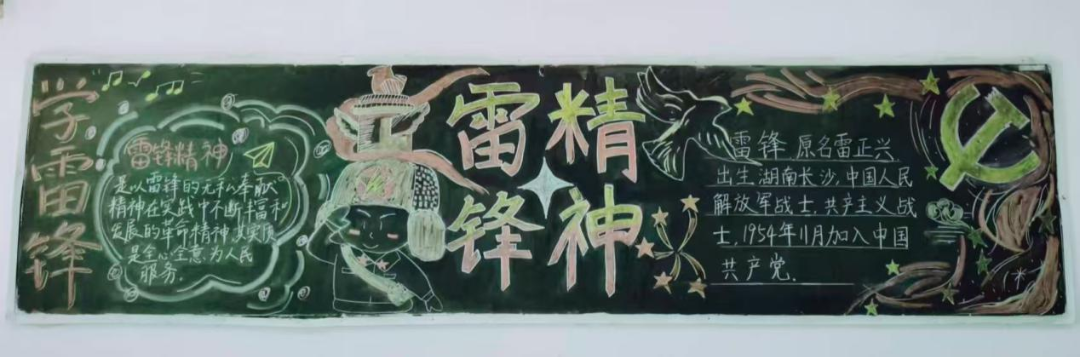 学雷锋
雷锋精神
是以雷锋的无私奉献
精神在实践中不断丰富和
发展的革命精神,其实质
是全心全意为人民
服务.
雷锋
精神
雷锋 原名雷正兴
出生湖南长沙,中国人民
解放军战士,共产主义战
士,1954年11月加入中国
共产党.